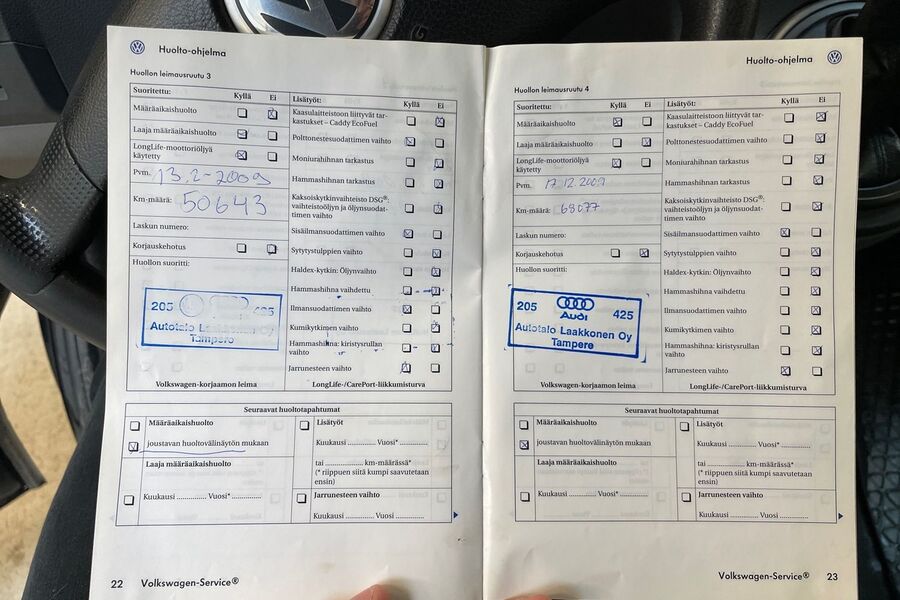 Huolto-ohjelma
Huollon leimausruutu 3
Suoritettu: Kyllä Ei
Määräaikaishuolto
Laaja määräaikaishuolto
LongLife-moottoriöljyä
käytetty
Pvm. 13.2-2009
Km-määrä: 50643
Laskun numero:
Korjauskehotus
Huollon suoritti:
205 425
Autotalo Laakkonen Oy
Tampere
Volkswagen-korjaamon leima
Lisätyöt: Kyllä Ei
Kaasulaitteistoon liittyvät tar-
kastukset – Caddy EcoFuel
Polttonestesuodattimen vaihto
Moniurahihnan tarkastus
Hammashihnan tarkastus
Kaksoiskytkinvaihteisto DSG®:
vaihteistoöljyn ja öljynsuodat-
timen vaihto
Sisäilmansuodattimen vaihto
Sytytystulppien vaihto
Haldex-kytkin: Öljynvaihto
Hammashihna vaihdettu
Ilmansuodattimen vaihto
Kumikytkimen vaihto
Hammashihna: kiristysrullan
vaihto
Jarrunesteen vaihto
LongLife-/CarePort-liikkumisturva
Seuraavat huoltotapahtumat
Määräaikaishuolto
joustavan huoltovälinäytön mukaan
Laaja määräaikaishuolto
Kuukausi ............ Vuosi* ............
Lisätyöt
Kuukausi ............ Vuosi* ............
tai ............ km-määrässä*
(* riippuen siitä kumpi saavutetaan
ensin)
Jarrunesteen vaihto
Kuukausi ............ Vuosi ............
22 Volkswagen-Service®
Huolto-ohjelma
Huollon leimausruutu 4
Suoritettu: Kyllä Ei
Määräaikaishuolto
Laaja määräaikaishuolto
LongLife-moottoriöljyä
käytetty
Pvm. 17.12.2009
Km-määrä: 68077
Laskun numero:
Korjauskehotus
Huollon suoritti:
205 425
Audi
Autotalo Laakkonen Oy
Tampere
Volkswagen-korjaamon leima
Lisätyöt: Kyllä Ei
Kaasulaitteistoon liittyvät tar-
kastukset – Caddy EcoFuel
Polttonestesuodattimen vaihto
Moniurahihnan tarkastus
Hammashihnan tarkastus
Kaksoiskytkinvaihteisto DSG®:
vaihteistoöljyn ja öljynsuodat-
timen vaihto
Sisäilmansuodattimen vaihto
Sytytystulppien vaihto
Haldex-kytkin: Öljynvaihto
Hammashihna vaihdettu
Ilmansuodattimen vaihto
Kumikytkimen vaihto
Hammashihna: kiristysrullan
vaihto
Jarrunesteen vaihto
LongLife-/CarePort-liikkumisturva
Seuraavat huoltotapahtumat
Määräaikaishuolto
joustavan huoltovälinäytön mukaan
Laaja määräaikaishuolto
Kuukausi ............ Vuosi* ............
Lisätyöt
Kuukausi ............ Vuosi* ............
tai ............ km-määrässä*
(* riippuen siitä kumpi saavutetaan
ensin)
Jarrunesteen vaihto
Kuukausi ............ Vuosi ............
Volkswagen-Service® 23